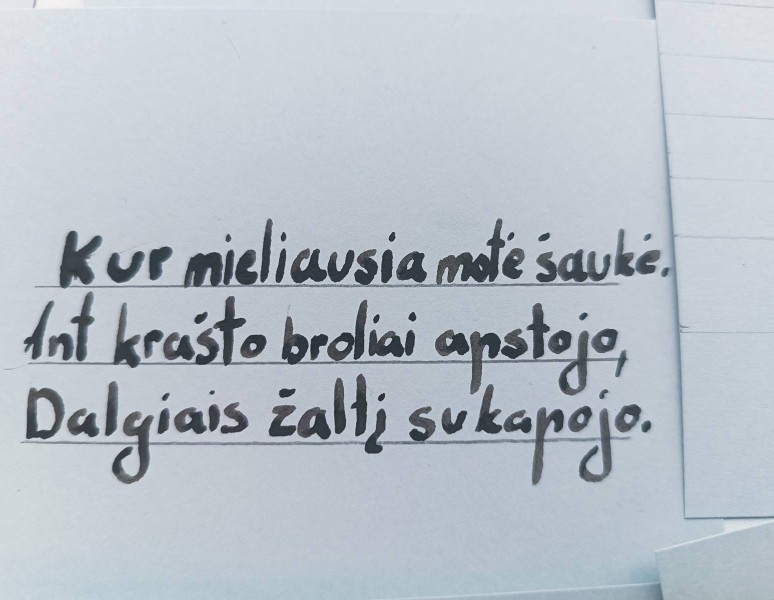 Kur mieliausia motė šaukė.
Ant krašto broliai apstojo,
Dalgiais žaltį sukapojo.